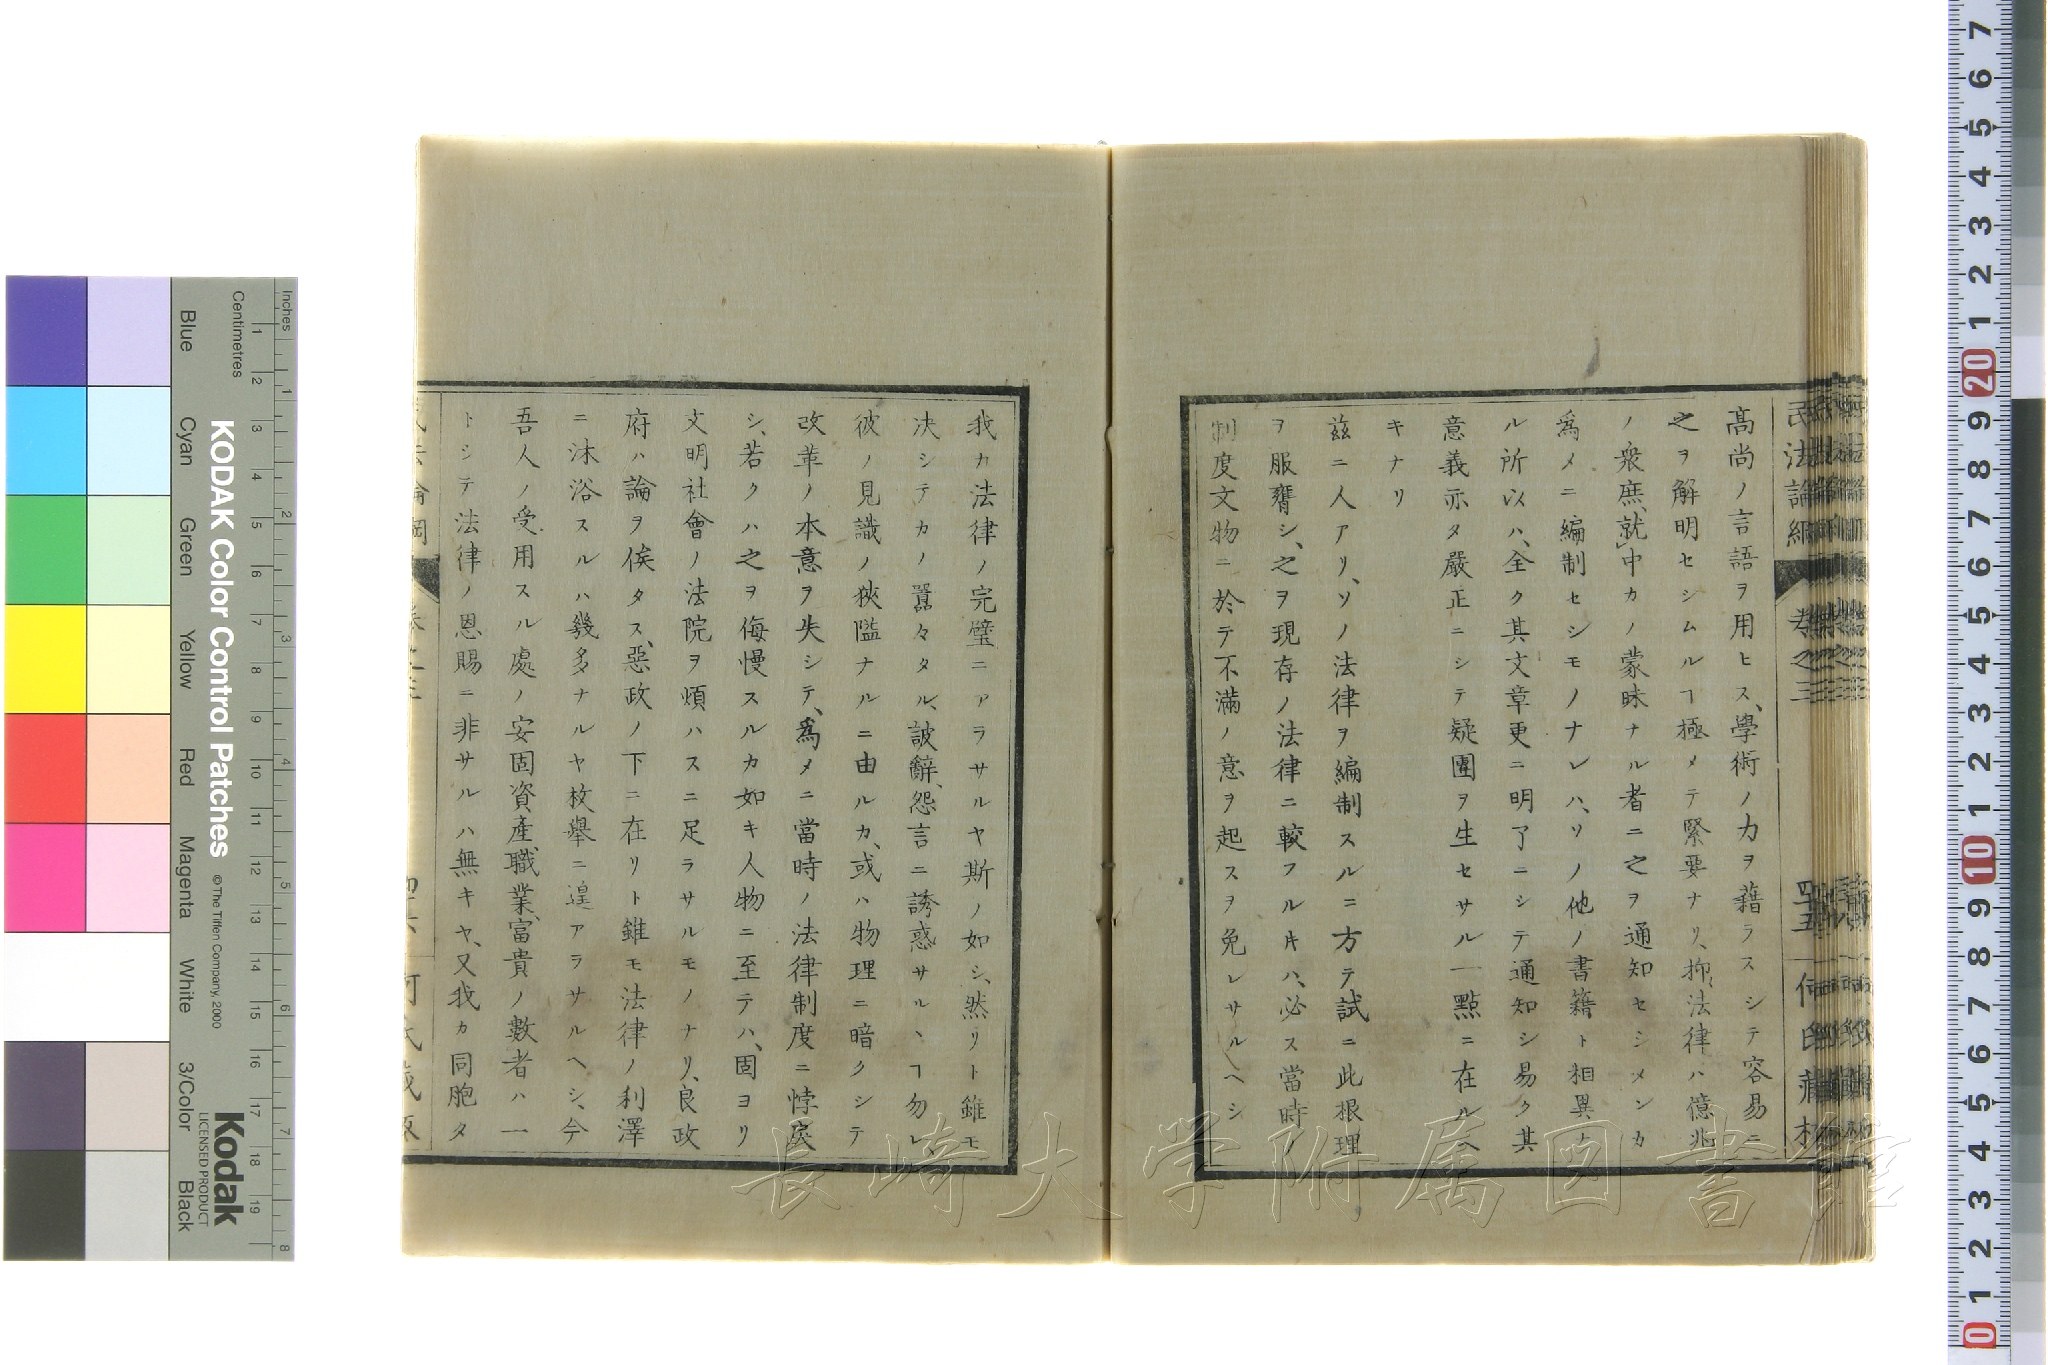 民法論綱 卷之三 四十五 何氏藏板
高尚ノ言語ヲ用ヒス、學術ノ力ヲ藉ラスシテ容易ニ
之ヲ解明セシムルヿ極メテ緊要ナリ、抑法律ハ億兆
ノ衆庶、就中カノ蒙昧ナル者ニ之ヲ通知セシメンカ
爲メニ編制セシモノナレハ、ソノ他ノ書籍ト相異ナ
ル所以ハ、全ク其文章更ニ明了ニシテ通知シ易ク其
意義亦タ嚴正ニシテ疑團ヲ生セサル一點ニ在ルヘ
キナリ
茲ニ人アリ、ソノ法律ヲ編制スルニ方テ試ニ此根理
ヲ服膺シ、之ヲ現存ノ法律ニ較フル片ハ、必ス當時ノ
制度文物ニ於テ不滿ノ意ヲ起スヲ免レサルヘシ
我カ法律ノ完璧ニアラサルヤ斯ノ如シ、然リト雖モ
决シテカノ囂々タル、詖辭、怨言ニ誘惑サルヽヿ勿レ、
彼ノ見識ノ狹隘ナルニ由ルカ、或ハ物理ニ暗クシテ
改革ノ本意ヲ失シテ、爲メニ當時ノ法律制度ニ悖戾
シ、若クハ之ヲ侮慢スルカ如キ人物ニ至テハ、固ヨリ
文明社會ノ法院ヲ煩ハスニ足ラサルモノナリ、良政
府ハ論ヲ俟タス、惡政ノ下ニ在リト雖モ法律ノ利澤
ニ沐浴スルハ幾多ナルヤ枚擧ニ遑アラサルヘシ、今
吾人ノ受用スル處ノ安固資產、職業、富貴ノ數者ハ一
トシテ法律ノ恩賜ニ非サルハ無キヤ、又我カ同胞タ
Inches
Centimetres
KODAK Color Control Patches
© The Tiffen Company, 2000
Kodak
LICENSED PRODUCT
Blue
Cyan
Green
Yellow
Red
Magenta
White
3/Color
Black
長崎大学附属図書館